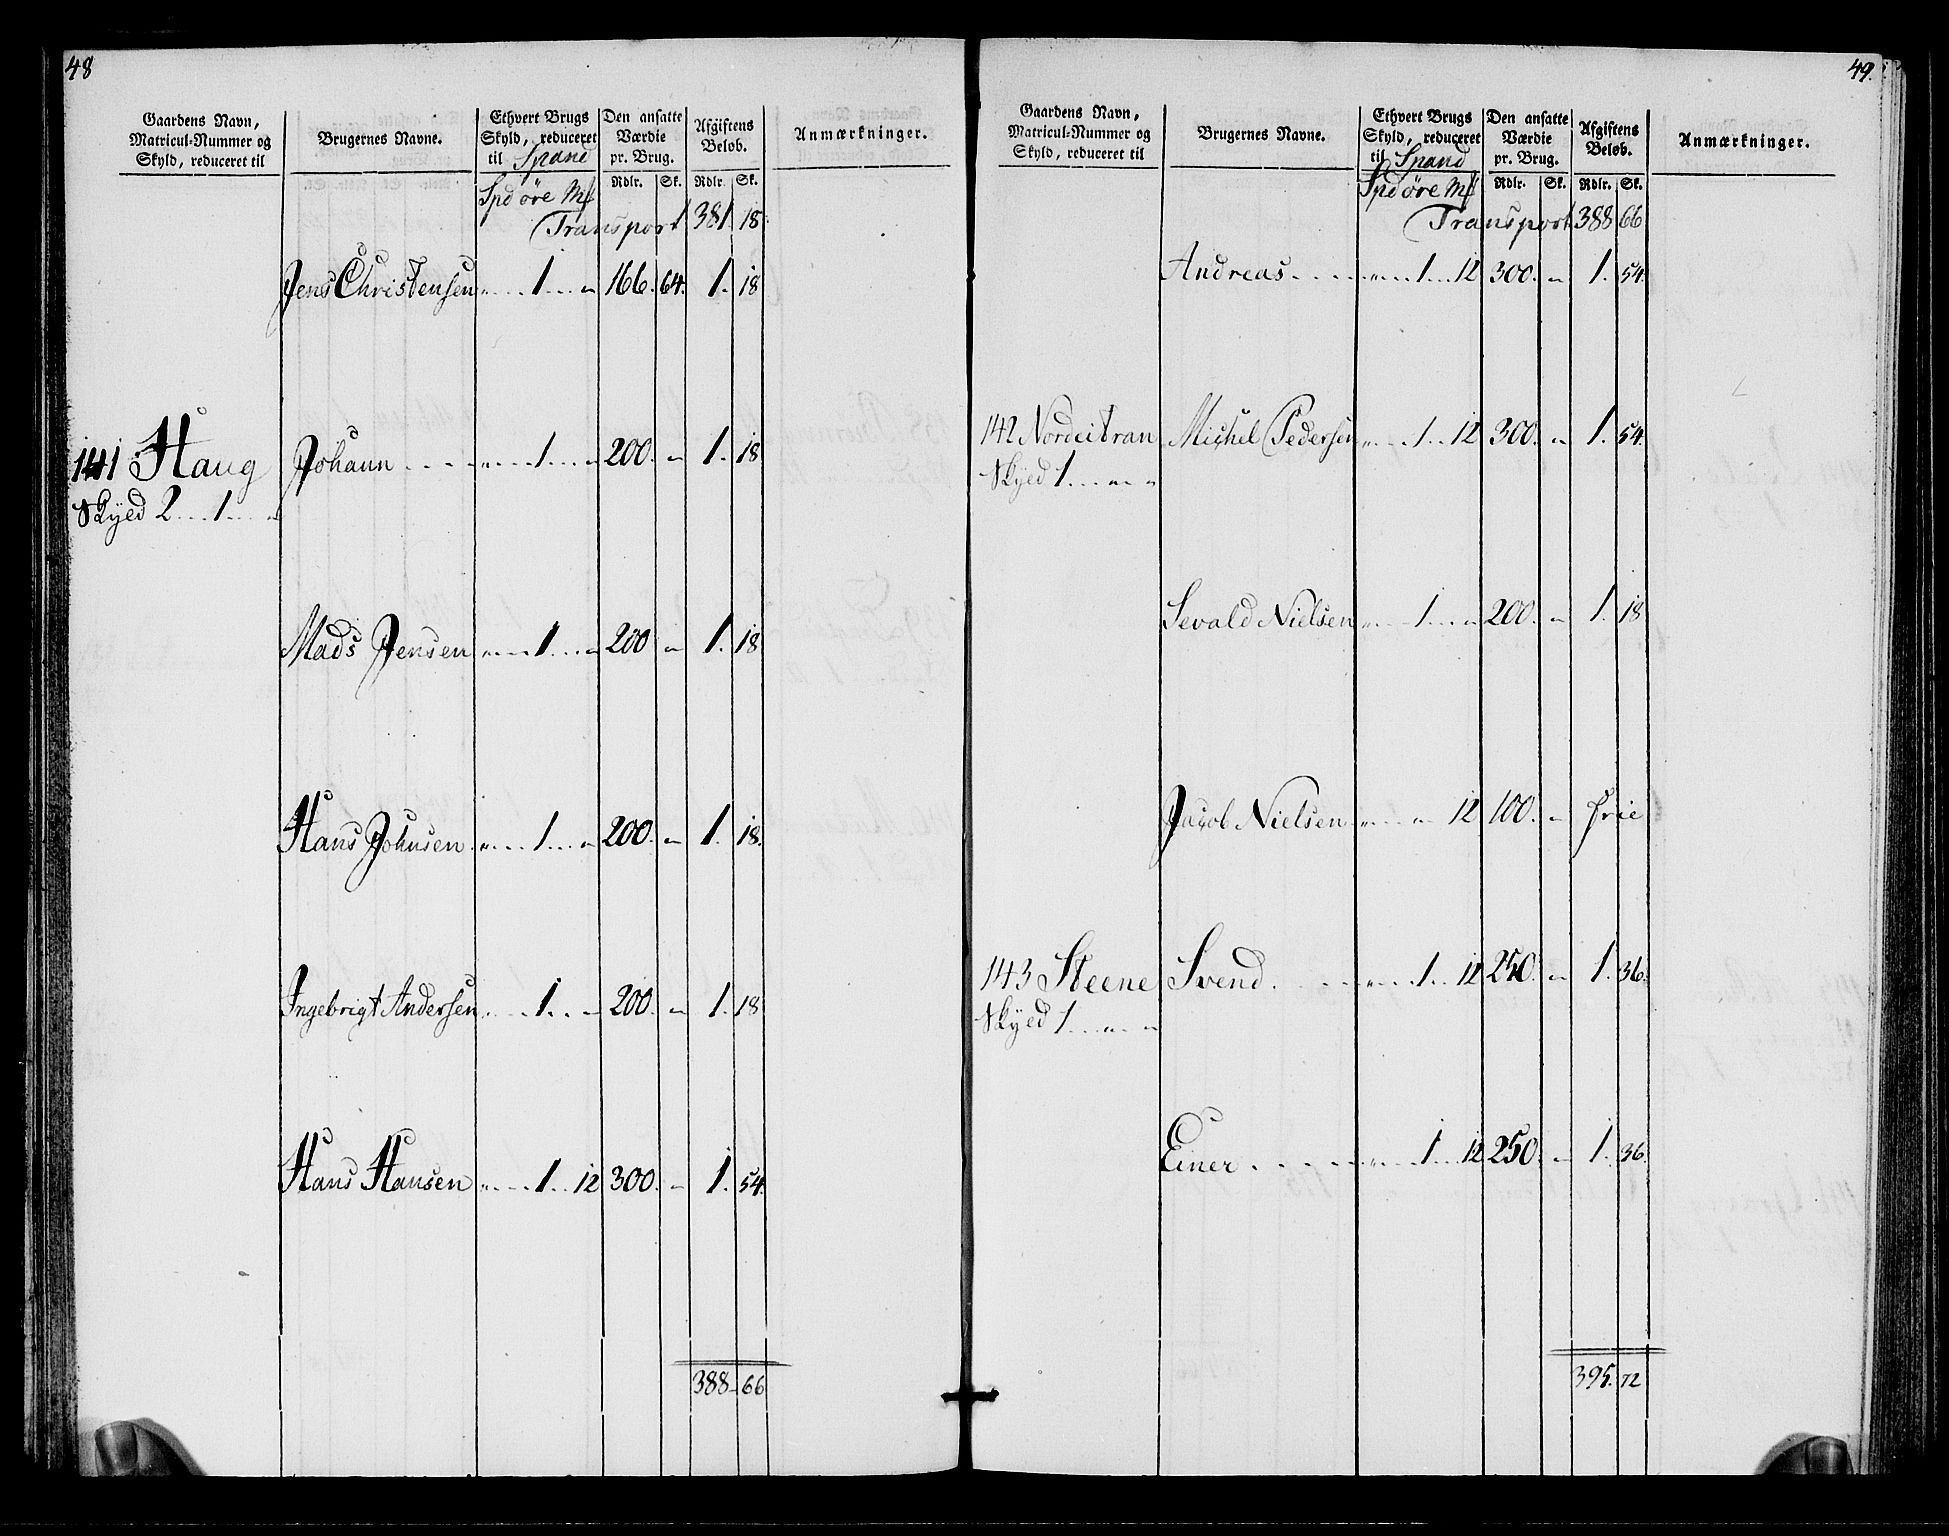 48
Gaardens Navn, Matricul-Nummer og Skyld, reduceret til
Brugernes Navne.
Ethvert Brugs Skyld, reduceret til Spand
Den ansatte Værdie pr. Brug.
Afgiftens Beløb.
Anmærkninger.
Spd øre Mk Rdlr. Sk. Rdlr. Sk.
Transport 381. 18.
Jens Christensen „ 1 „ 166. 64. 1. 18
141 Haug Johann „ 1 „ 200. „ 1. 18
Skyld 2 1 „
Mads Jensen „ 1 „ 200 „ 1. 18
Hans Johnsen „ 1 „ 200. „ 1. 18.
Ingebrigt Andersen „ 1 „ 200. „ 1. 18
Hans Hansen „ 1 12 300. „ 1. 54.
388 66
49.
Gaardens Navn, Matricul-Nummer og Skyld, reduceret til
Brugernes Navne.
Ethvert Brugs Skyld, reduceret til Spand
Den ansatte Værdie pr. Brug.
Afgiftens Beløb.
Anmærkninger.
Spd øre Mk Rdlr. Sk. Rdlr. Sk.
Transport 388 66
Andreas „ 1 12 300. „ 1. 54.
142 Nordeitran Michel Pedersen „ 1 12 300. „ 1. 54.
Skyld 1 „ „
Sevald Nielsen „ 1 „ 200. „ 1. 18
Jacob Nielsen „ „ 12 100. „ Frie
143 Steene Svend „ 1 12 250. „ 1. 36.
Skyld 1 „ „
Einer „ 1 12 250. „ 1. 36.
395. 72